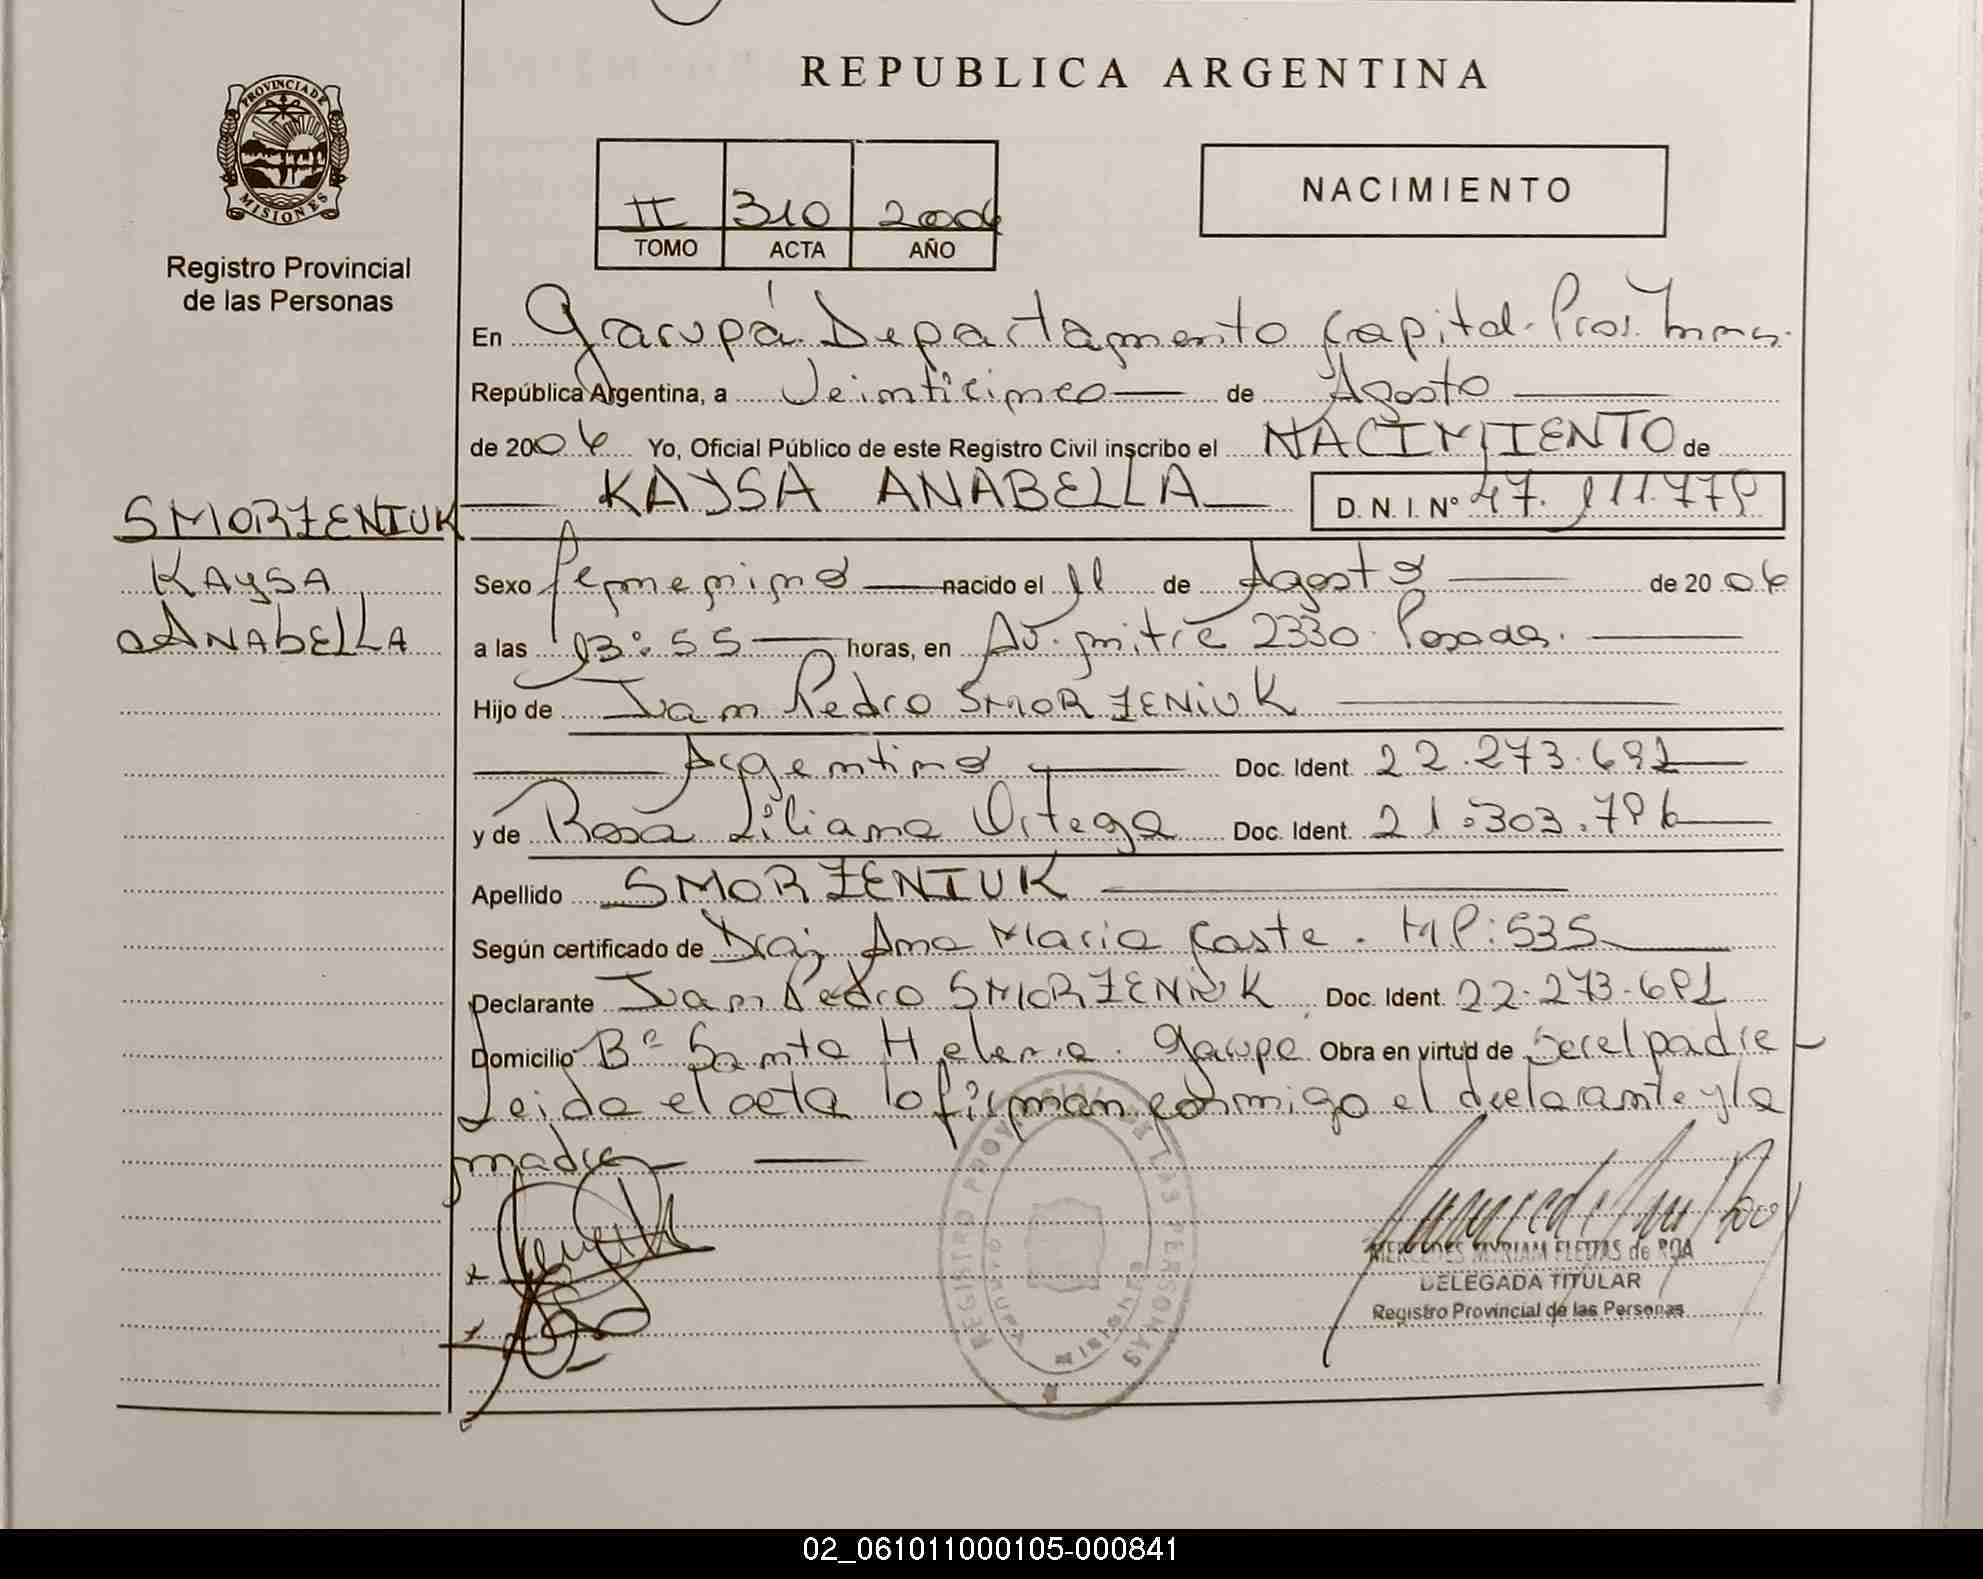 REPUBLICA ARGENTINA
PROVINCIA DE
MISIONES
Registro Provincial
de las Personas
II 310 2006
TOMO ACTA AÑO
NACIMIENTO
En Garupá Departamento Capital. Prov.
República Argentina, a Veinticinco de Agosto
de 2006 Yo, Oficial Público de este Registro Civil inscribo el NACIMIENTO de
KAYSA ANABELLA D. N. I. Nº 47.
SMORZENIUK
KAYSA
ANABELLA
Sexo femenino nacido el 11 de Agosto de 2006
a las 13:55 horas, en Av. mitre 2330. Posadas.
Hijo de Juan Pedro SMORZENIUK
Argentino Doc. Ident. 22.273.691
y de Rosa Liliana Ortega Doc. Ident. 21.303.796
Apellido SMORZENIUK
Según certificado de Dra; Ana Maria Caste. MP:535
Declarante Juan Pedro SMORZENIUK Doc. Ident. 22.273.691
Domicilio Bº Santa Helena. Garupa Obra en virtud de ser el padre
Leida el acta la firman conmigo el declarante y la
madre
REGISTRO PROVINCIAL DE LAS PERSONAS
MISIONES
MERCEDES MYRIAM FLEITAS de ROA
DELEGADA TITULAR
Registro Provincial de las Personas
02_061011000105-000841